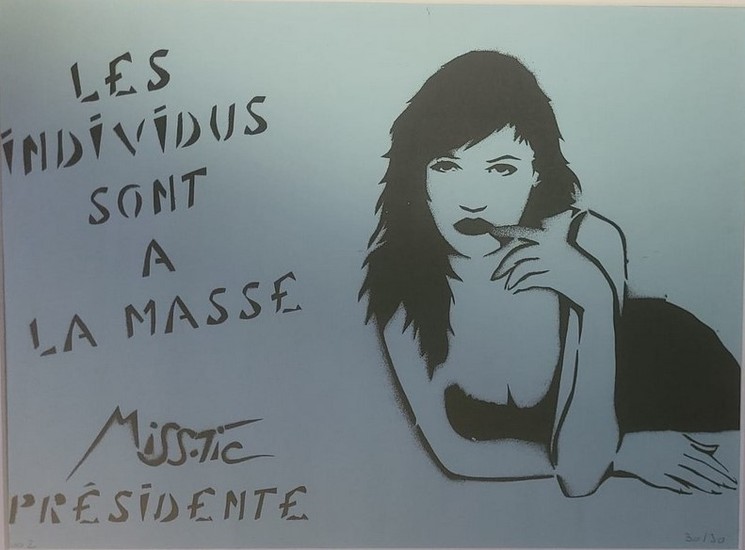 LES
INDIVIDUS
SONT
A
LA MASSE
Miss.Tic
PRÉSIDENTE
30/30